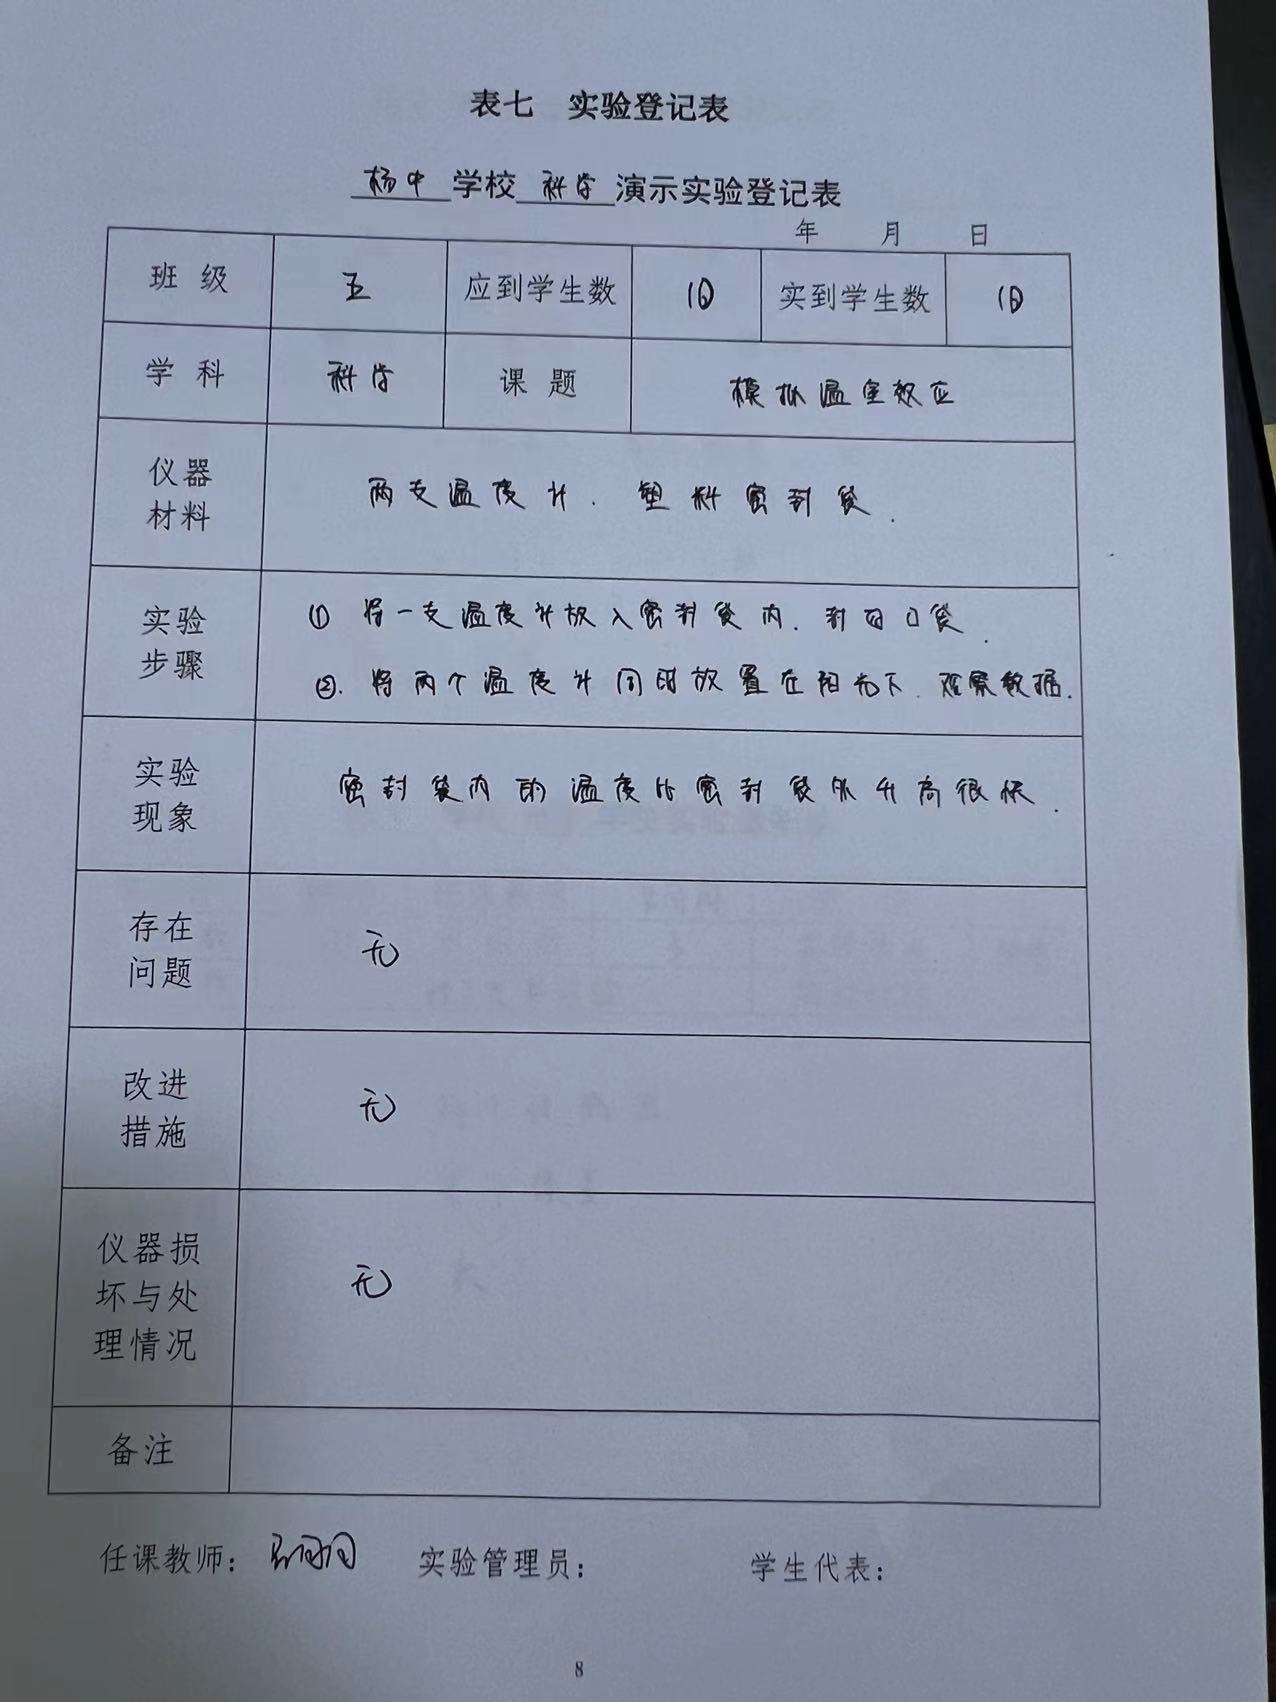 表七 实验登记表
杨中 学校 科学 演示实验登记表
年 月 日
班 级 五 应到学生数 实到学生数
学 科 科学 课 题 模拟温室效应
仪器材料 两支温度计. 塑料密封袋.
实验步骤 ① 将一支温度计放入密封袋内. 封口袋.
②. 将两个温度计同时放置在阳光下. 观察数据.
实验现象 密封袋内的温度比密封袋外升高很快.
存在问题 无
改进措施 无
仪器损坏与处理情况 无
备注
任课教师： 实验管理员： 学生代表：
8